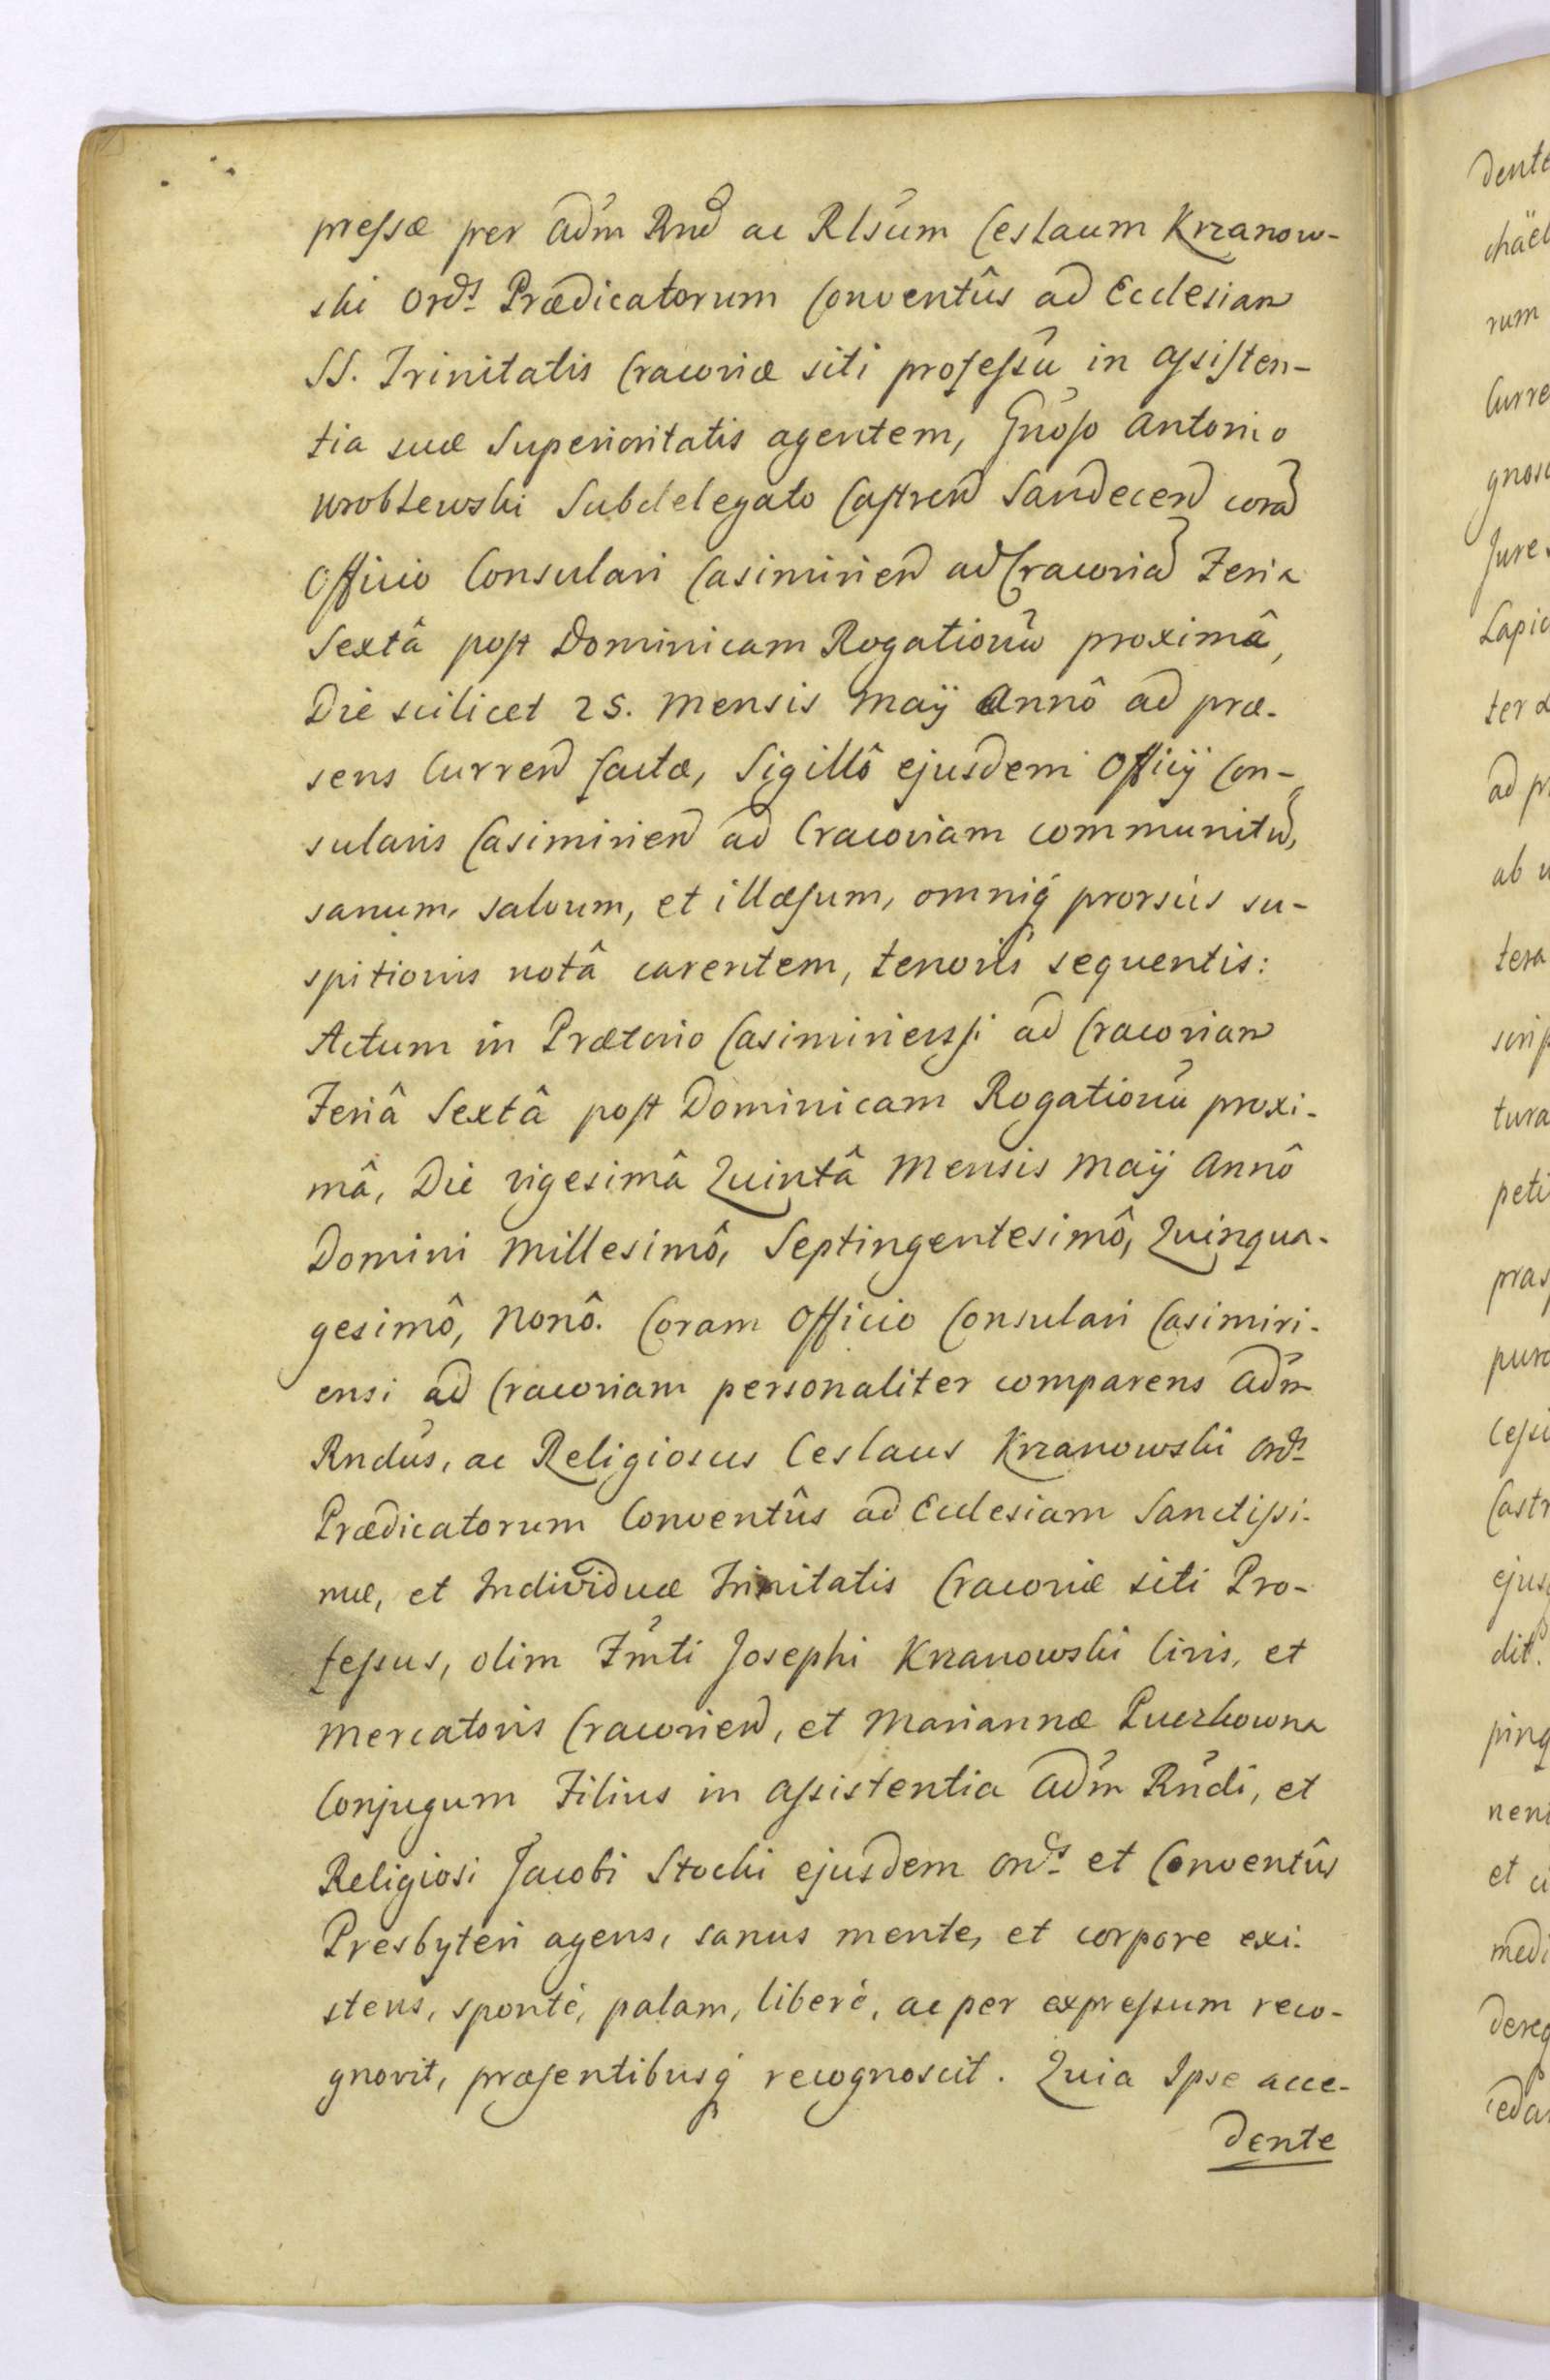 pressæ per Adm Rnd ac Rlsum Ceslaum Krzanow-
ski Ords Prædicatorum Conventûs ad Ecclesiam
SS. Trinitatis Cracoviæ siti professu in assisten-
tia suæ Superioritatis agentem, Gnoso Antonio
Wroblewski Subdelegato Castren Sandecen cora
Officio Consulari Casimirien ad Cracovia Feria
Sextâ post Dominicam Rogationu proximâ,
Die scilicet 25. Mensis Maÿ Annô ad præ-
sens Curren factæ, Sigillô ejusdem Officÿ Con-
sularis Casimirien ad Cracoviam communitu,
sanum, salvum, et illæsum, omniq prorsùs su-
spitionis notâ carentem, tenoris sequentis:
Actum in Prætorio Casimiriensi ad Cracoviam
Feriâ Sextâ post Dominicam Rogationu proxi-
mâ, Die vigesimâ Quintâ Mensis Maÿ Annô
Domini Millesimô, Septingentesimô, Quinqua-
gesimô, Nonô. Coram Officio Consulari Casimiri-
ensi ad Cracoviam personaliter comparens Adm
Rndus, ac Religiosus Ceslaus Krzanowski Ords
Prædicatorum Conventûs ad Ecclesiam Sanctissi-
mæ, et Individuæ Trinitatis Cracoviæ siti Pro-
fessus, olim Fmti Josephi Krzanowski Civis, et
Mercatoris Cracovien, et Mariannæ Puczkowna
Conjugum Filius in assistentia Adm Rndi, et
Religiosi Jacobi Stocki ejusdem Ords et Conventûs
Presbyteri agens, sanus mente, et corpore exi-
stens, spontè, palam, liberè, ac per expressum reco-
gnovit, præsentibusq recognoscit. Quia Ipse acce-
dente